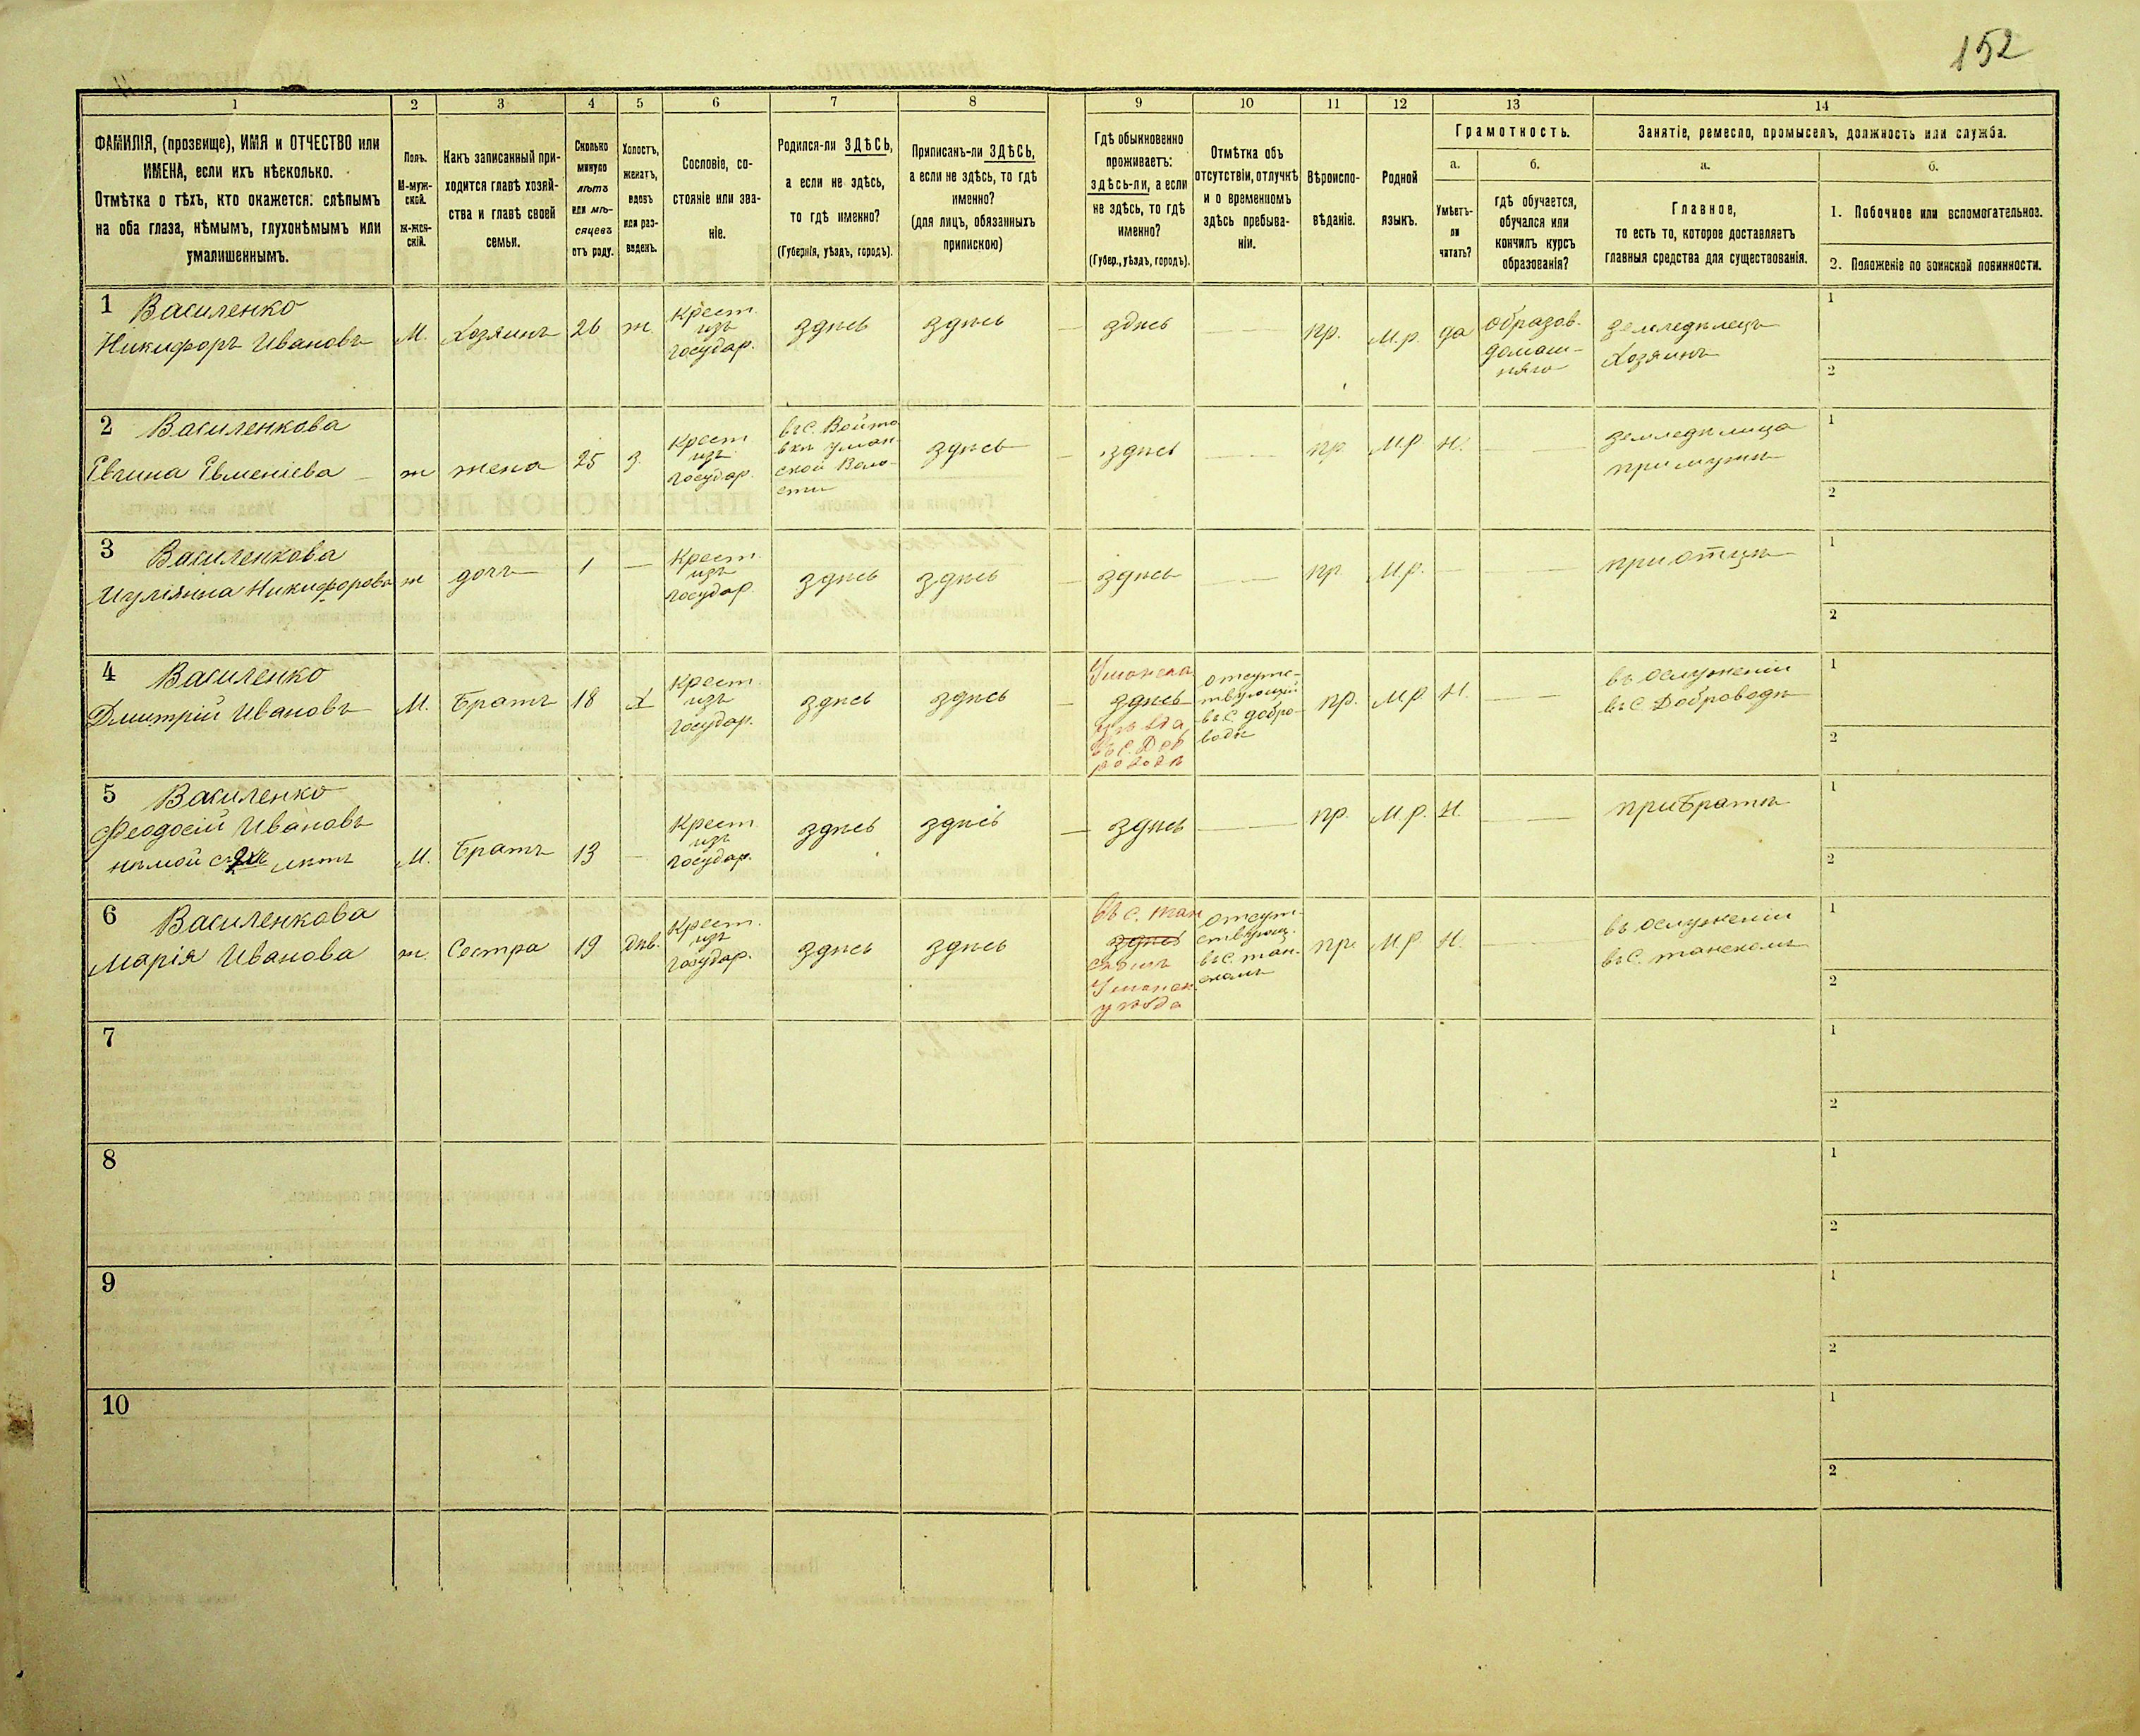 152
1
2
3
4
5
6
7
8
9
10
11
12
13
14
ФАМИЛІЯ, (прозвище), ИМЯ и ОТЧЕСТВО или
ИМЕНА, если ихъ нѣсколько.
Отмѣтка о тѣхъ, кто окажется: слѣпымъ
на оба глаза, нѣмымъ, глухонѣмымъ или
умалишеннымъ.
Полъ.
М-муж-
ской.
ж-жен-
скій.
Какъ записанный при-
ходится главѣ хозяй-
ства и главѣ своей
семьи.
Сколько
минуло
лѣтъ
или мѣ-
сяцевъ
отъ роду.
Холостъ,
женатъ,
вдовъ
или раз-
веденъ.
Сословіе, со-
стояніе или зва-
ніе.
Родился-ли ЗДѢСЬ,
а если не здѣсь,
то гдѣ именно?
(Губернія, уѣздъ, городъ).
Приписанъ-ли ЗДѢСЬ,
а если не здѣсь, то гдѣ
именно?
(для лицъ, обязанныхъ
припискою)
Гдѣ обыкновенно
проживаетъ:
здѣсь-ли, а если
не здѣсь, то гдѣ
именно?
(Губер., уѣздъ, городъ).
Отмѣтка объ
отсутствіи, отлучкѣ
и о временномъ
здѣсь пребыва-
ніи.
Вѣроиспо-
вѣданіе.
Родной
языкъ.
Грамотность.
а.
б.
Умѣетъ-
ли
читать?
гдѣ обучается,
обучался или
кончилъ курсъ
образованія?
Занятіе, ремесло, промыселъ, должность или служба.
а.
б.
Главное,
то есть то, которое доставляетъ
главныя средства для существованія.
1. Побочное или вспомогательное.
2. Положеніе по воинской повинности.
1 Василенко
Никифоръ Ивановъ
М.
Хозяинъ
26
ж.
Крест.
изъ
государ.
здѣсь
здѣсь
—
здѣсь
— —
пр.
М.р.
да
образов.
домаш-
няго
земледѣлецъ
Хозяинъ
1
2
2 Василенкова
Евгина Евменіева
ж
жена
25
з.
Крест
изъ
государ.
въ с. Войто
вкѣ Уман-
ской Воло-
сти
здѣсь
—
здѣсь
— —
пр.
М.р.
Н.
— —
земледѣлица
при мужѣ
1
2
3 Василенкова
Иуліянна Никифорова
ж
дочь
1
—
Крест.
изъ
государ.
здѣсь
здѣсь
—
здѣсь
— —
пр.
М.р.
—
— —
при отцѣ
1
2
4 Василенко
Дмитрій Ивановъ
М.
Братъ
18
х
Крест.
изъ
государ.
здѣсь
здѣсь
—
здѣсь
въ с. Доб
роводѣ
отсутс-
твующій
въ с. добро-
водѣ
пр.
М.р.
Н.
— —
въ ослуженіи
въ с. Доброводѣ
1
2
5 Василенко
Феодосій Ивановъ
нѣмой лѣтъ
М.
Братъ
13
—
Крест
изъ
государ.
здѣсь
здѣсь
—
здѣсь
— —
пр.
М.р.
Н.
— —
при Братѣ
1
2
6 Василенкова
Марія Иванова
ж.
Сестра
19
Дѣв.
Крест.
изъ
государ.
здѣсь
здѣсь
въ с. тан
здѣсь
скомъ
Уманск.
уѣзда
отсут-
ствующ.
въ с. тан-
скомъ
пр.
М.р.
Н.
— —
въ ослуженіи
въ с. танскомъ
1
2
7
1
2
8
1
2
9
1
2
10
1
2